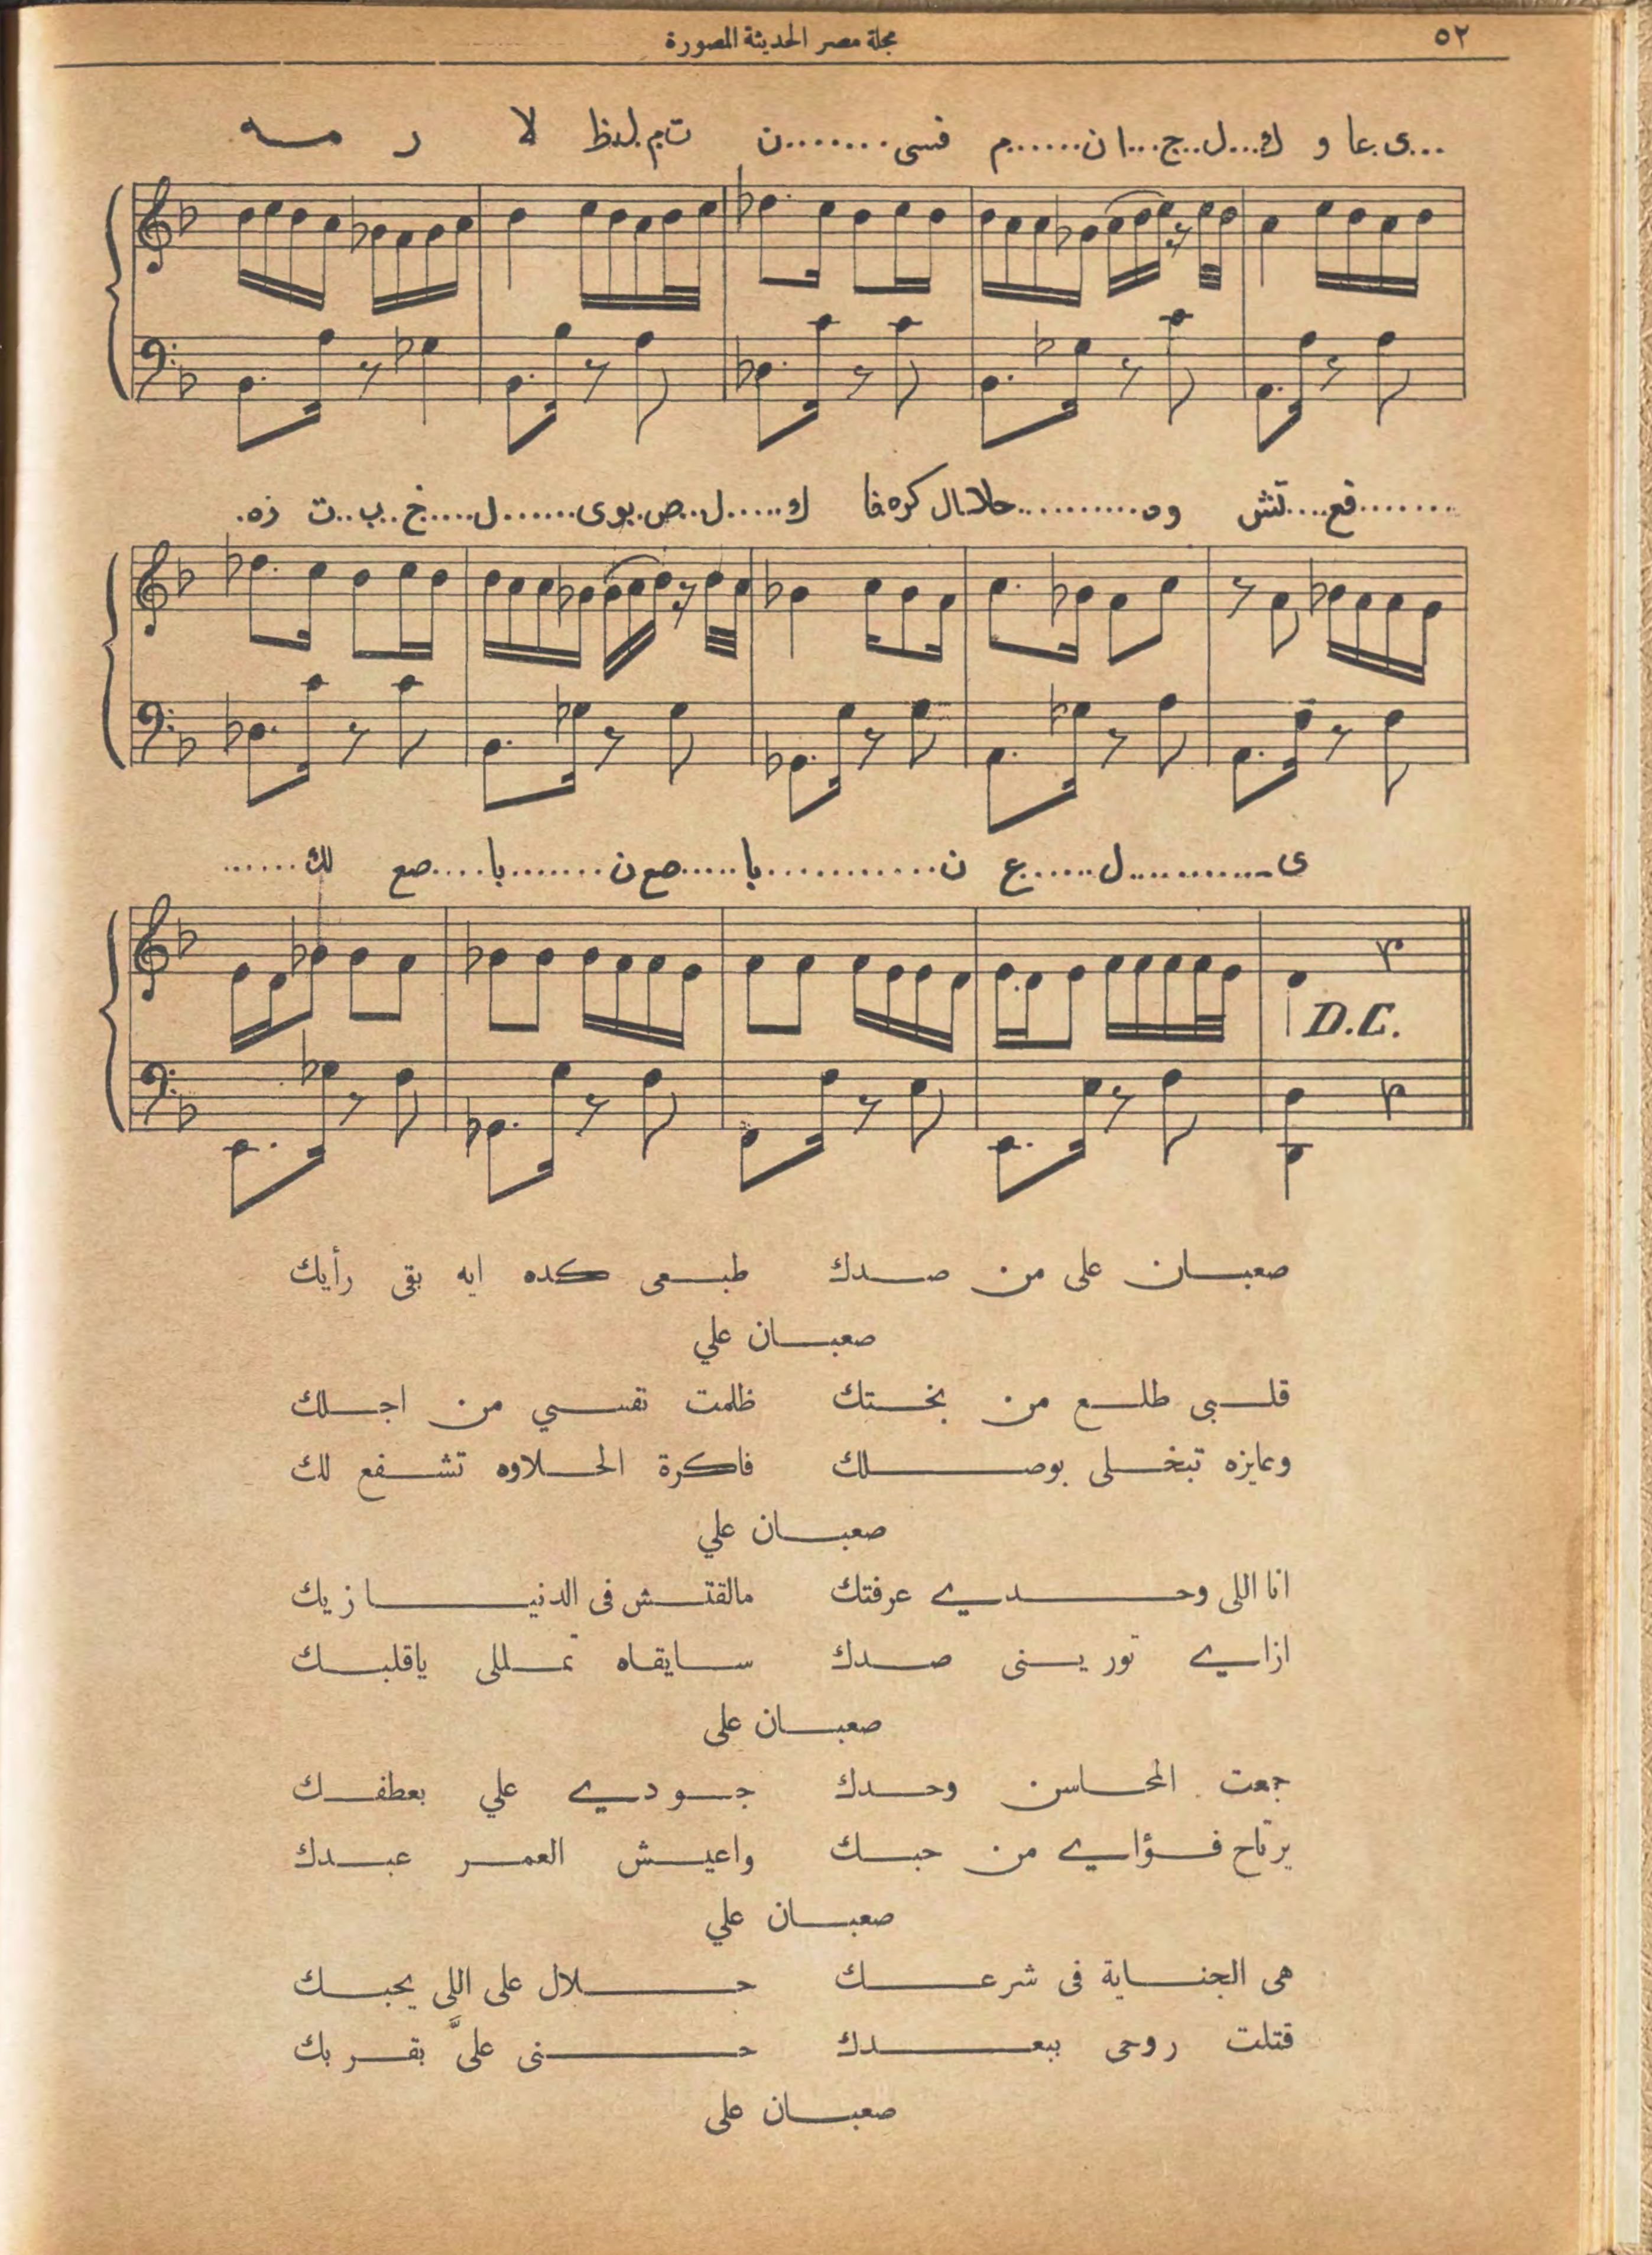 ٥٢
مجلة مصر الحديثة المصورة
D.C.
صعبان على من صدك طبعى كده ايه بقى رأيك
صعبان علي
قلبى طلع من بختك ظلمت نفسي من اجلك
وعايزه تبخلى بوصلك فاكرة الحلاوه تشفع لك
صعبان علي
انا اللى وحدي عرفتك مالقتش فى الدنيا زيك
ازاي تورينى صدك سايقاه تمللى ياقلبك
صعبان على
جمعت المحاسن وحدك جودي علي بعطفك
يرتاح فؤاي من حبك واعيش العمر عبدك
صعبان علي
هى الجناية فى شرعك حلال على اللى يحبك
قتلت روحى ببعدك حنى علىَّ بقربك
صعبان على